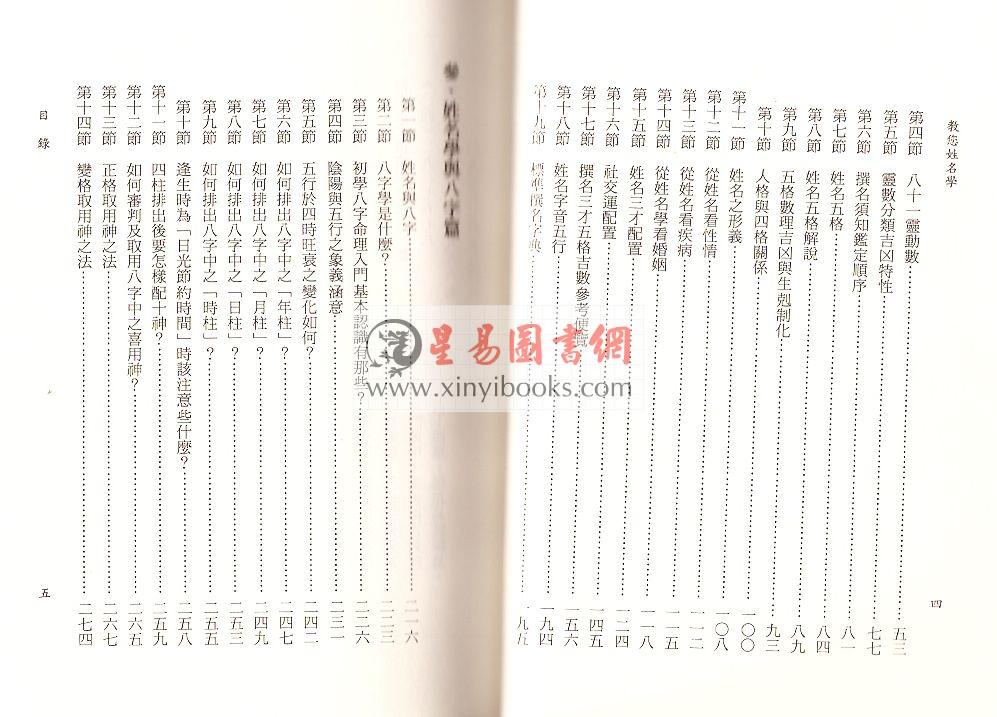 教您姓名學
第四節 八十一靈動數 五三
第五節 靈數分類吉凶特性 七七
第六節 撰名須知鑑定順序
第七節 姓名五格 八一
第八節 姓名五格解說 八四
第九節 五格數理吉凶與生剋制化 八九
第十節 人格與四格關係 九三
第十一節 姓名之形義 一〇〇
第十二節 從姓名看性情 一〇八
第十三節 從姓名看疾病 一一二
第十四節 從姓名學看婚姻 一一五
第十五節 姓名三才配置 一一八
第十六節 社交運配置 一二四
第十七節 撰名三才五格吉數參考便覽 一四五
第十八節 姓名字音五行 一五六
第十九節 標準撰名字典 一九四
四
參、姓名學與八字篇
第一節 姓名與八字 二一六
第二節 八字學是什麼？ 二二三
第三節 初學八字命理入門基本認識有那些？ 二二六
第四節 陰陽與五行之象義涵意 二三一
第五節 五行於四時旺衰之變化如何？ 二四二
第六節 如何排出八字中之「年柱」？ 二四七
第七節 如何排出八字中之「月柱」？ 二四九
第八節 如何排出八字中之「日柱」？ 二五三
第九節 如何排出八字中之「時柱」？ 二五五
第十節 逢生時為「日光節約時間」時該注意些什麼？ 二五八
第十一節 四柱排出後要怎樣配十神？ 二五九
第十二節 如何審判及取用八字中之喜用神？ 二六五
第十三節 正格取用神之法 二六七
第十四節 變格取用神之法 二七四
目錄
五
星易圖書網
www.xinyibooks.com